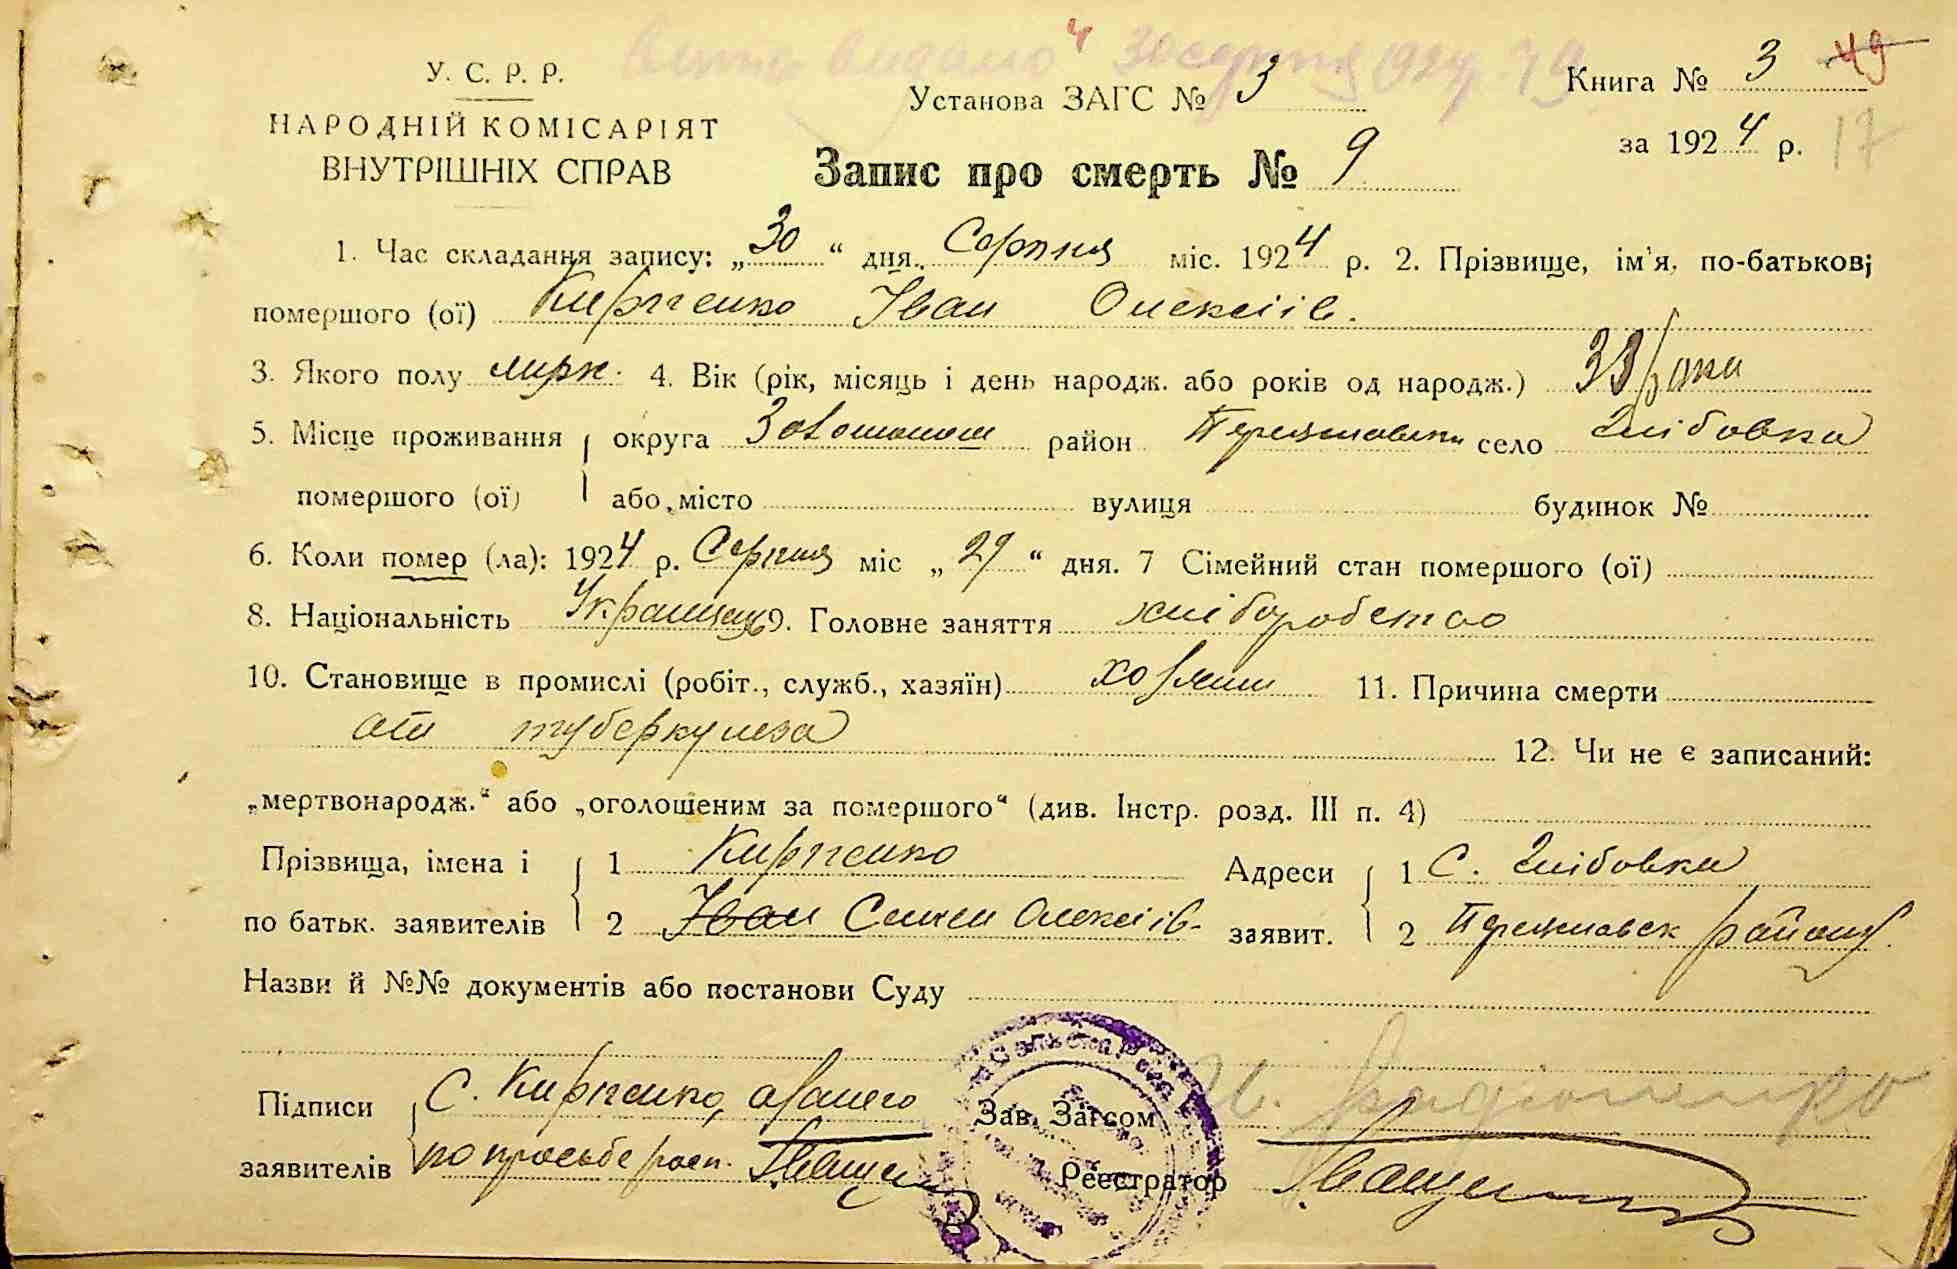 У. С. Р. Р.
НАРОДНІЙ КОМІСАРІЯТ
ВНУТРІШНІХ СПРАВ
видано 30 серпня 1924 р.
Установа ЗАГС № 3
Запис про смерть № 9
Книга № 3 49
за 1924 р. 17
1. Час складання запису: „30“ дня Серпня міс. 1924 р. 2. Прізвище, ім'я, по-батькові
помершого (ої) Кирпенко Іван Олексіів.
3. Якого полу 4. Вік (рік, місяць і день народж. або років од народж.) 33 роки
5. Місце проживання округа Золотонош район Переяславськ село Глібовка
помершого (ої) або місто вулиця будинок №
6. Коли помер (ла): 1924 р. Серпня міс „29“ дня. 7 Сімейний стан помершого (ої)
8. Національність Украинець 9. Головне заняття хліборобство
10. Становище в промислі (робіт., служб., хазяїн) хозяин 11. Причина смерти
от туберкулеза 12. Чи не є записаний:
„мертвонародж.“ або „оголошеним за помершого“ (див. Інстр. розд. III п. 4)
Прізвища, імена і 1 Кирпенко Адреси 1 С. Глібовка
по батьк. заявителів 2 Іван Семен Олексіів. заявит. 2 Переяславськ району
Назви й №№ документів або постанови Суду
Підписи С. Кирпенко, а за него Зав. Загсом
заявителів по просьбе расп. Іващенко Реєстратор Іващенко